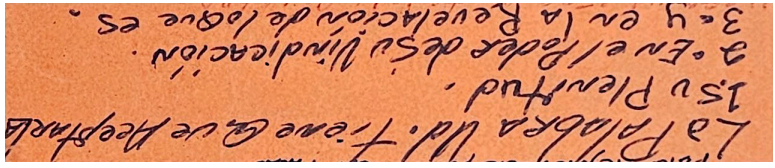 La Palabra Ud. Tiene Que Aceptarla
1. Su Plenitud.
2= En el Poder de Su Vindicación.
3= y en la Revelación de lo que es.